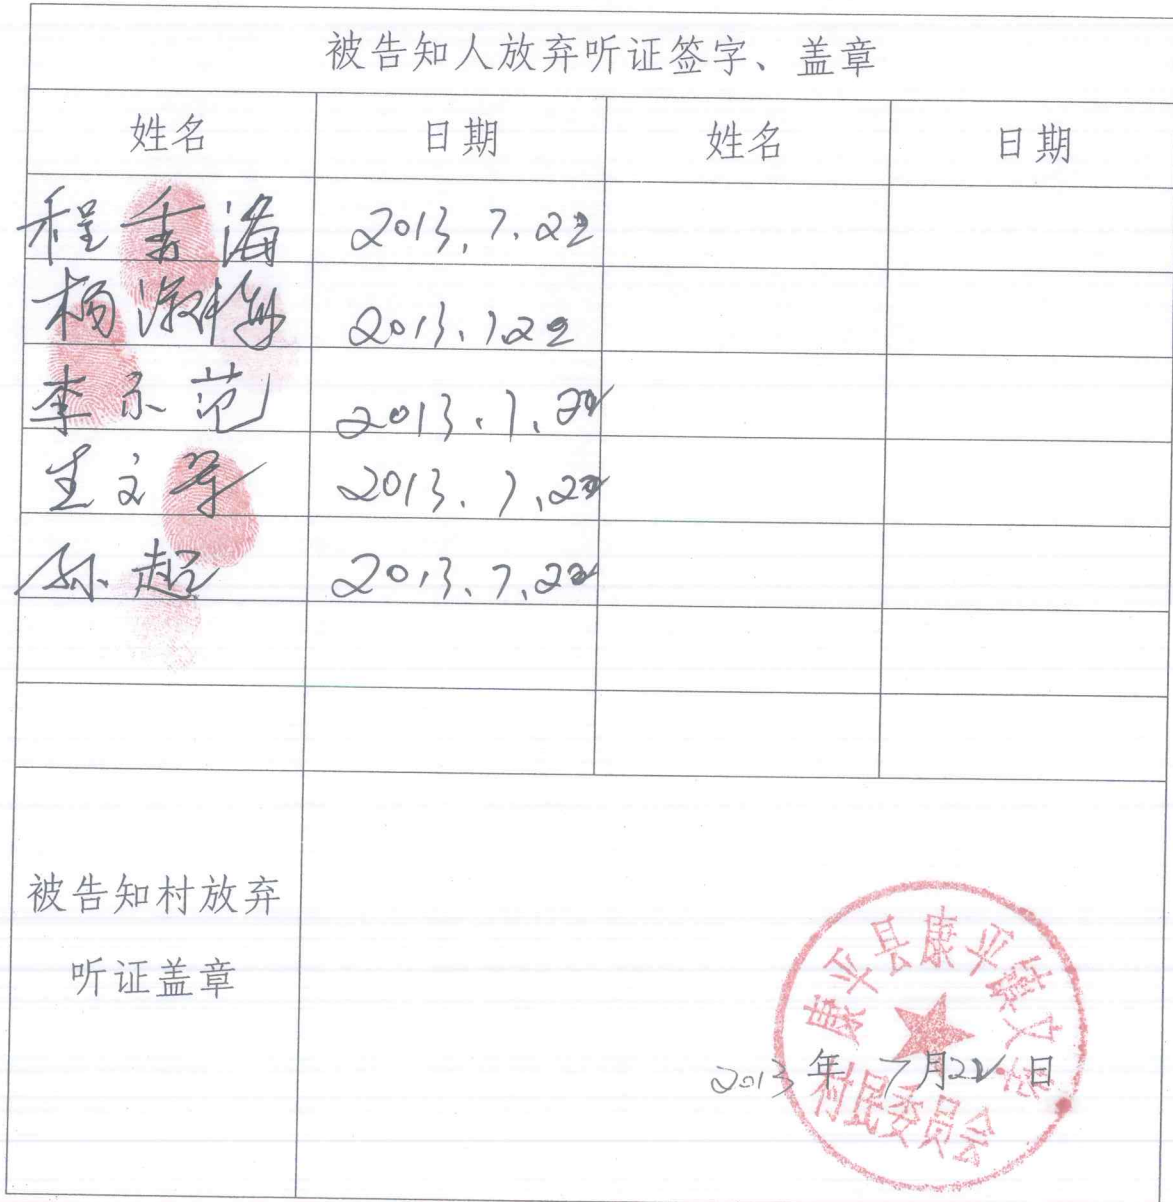 被告知人放弃听证签字、盖章
姓名 日期 姓名 日期
程 海 2013.7.22
杨 2013.7.22
李 范 2013.7.22
文 2013.7.22
孙超 2013.7.22
被告知村放弃
听证盖章
康平县康平镇
村民委员会
2013年7月22日